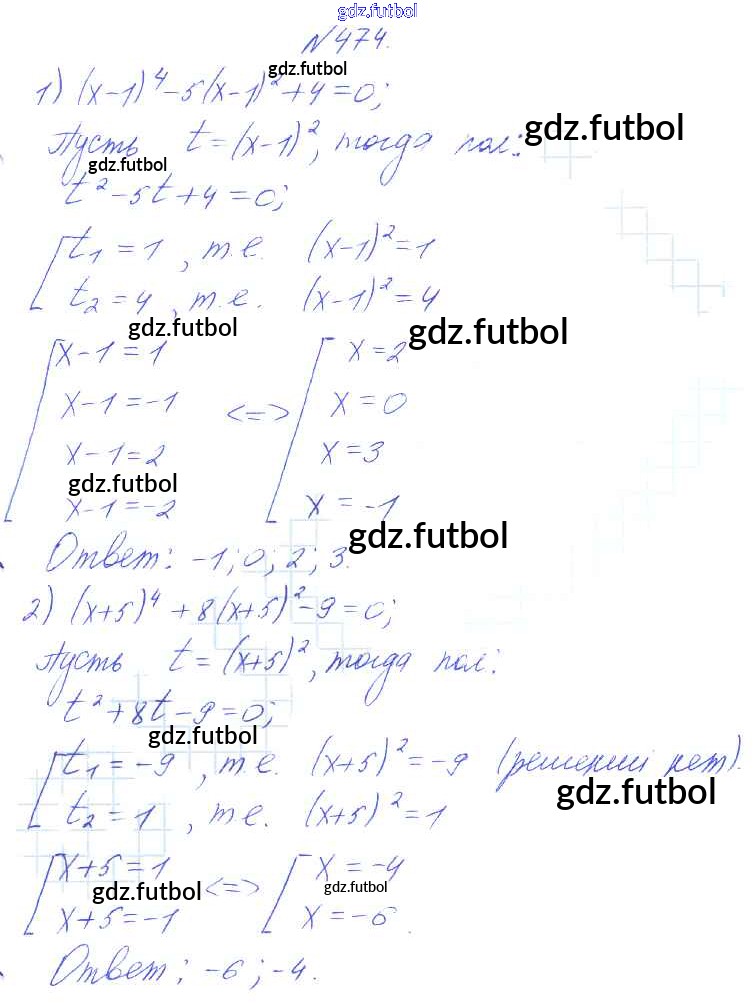 gdz.futbol
№474.
gdz.futbol
1) (x-1)^4-5(x-1)^2+4=0;
gdz.futbol
Пусть t=(x-1)^2, тогда пол:
gdz.futbol
t^2-5t+4=0;
[t_1=1, т.е. (x-1)^2=1
t_2=4, т.е. (x-1)^2=4
gdz.futbol gdz.futbol
[x-1=1 [x=2
x-1=-1 <=> x=0
x-1=2 x=3
gdz.futbol
x-1=-2 x=-1
gdz.futbol
Ответ: -1; 0; 2; 3.
2) (x+5)^4+8(x+5)^2-9=0;
Пусть t=(x+5)^2, тогда пол:
t^2+8t-9=0;
gdz.futbol
[t_1=-9, т.е. (x+5)^2=-9 (решений нет).
gdz.futbol
t_2=1, т.е. (x+5)^2=1
[x+5=1 <=> [x=-4
gdz.futbol gdz.futbol
x+5=-1 x=-6.
Ответ: -6; -4.